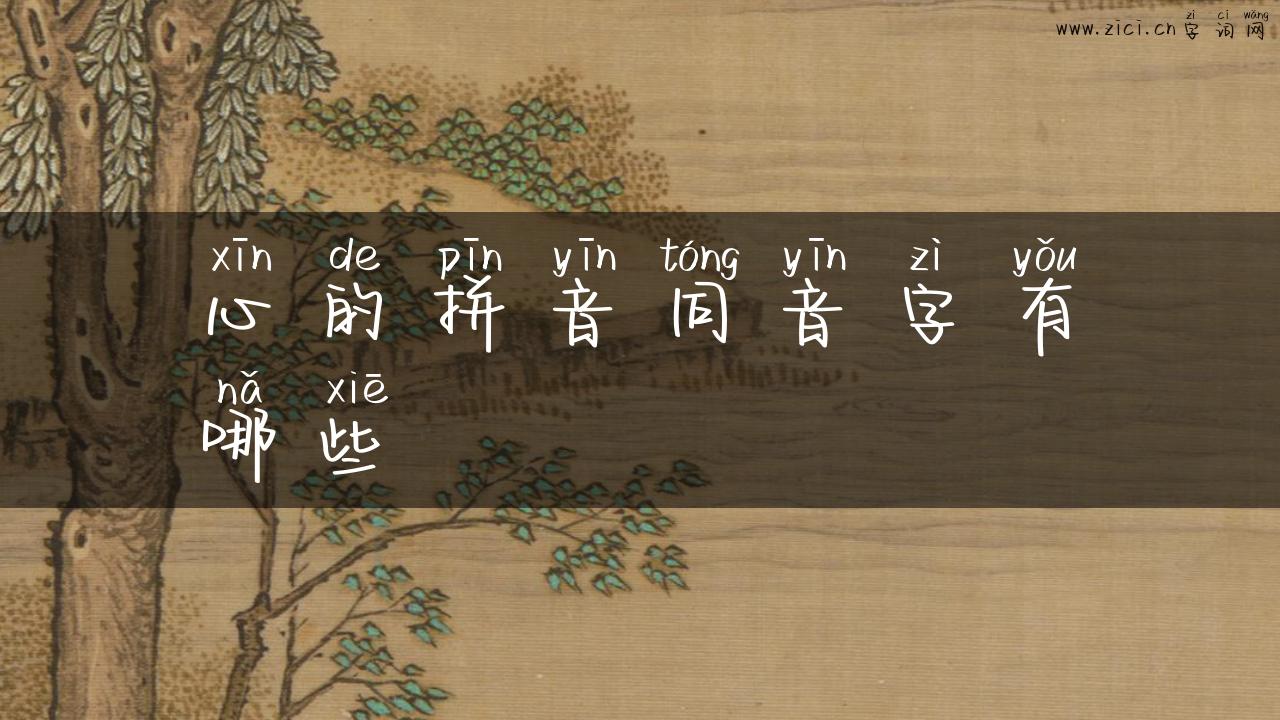 zì cí wǎng
www.zici.cn 字词网
xīn de pīn yīn tóng yīn zì yǒu
心的拼音同音字有
nǎ xiē
哪些